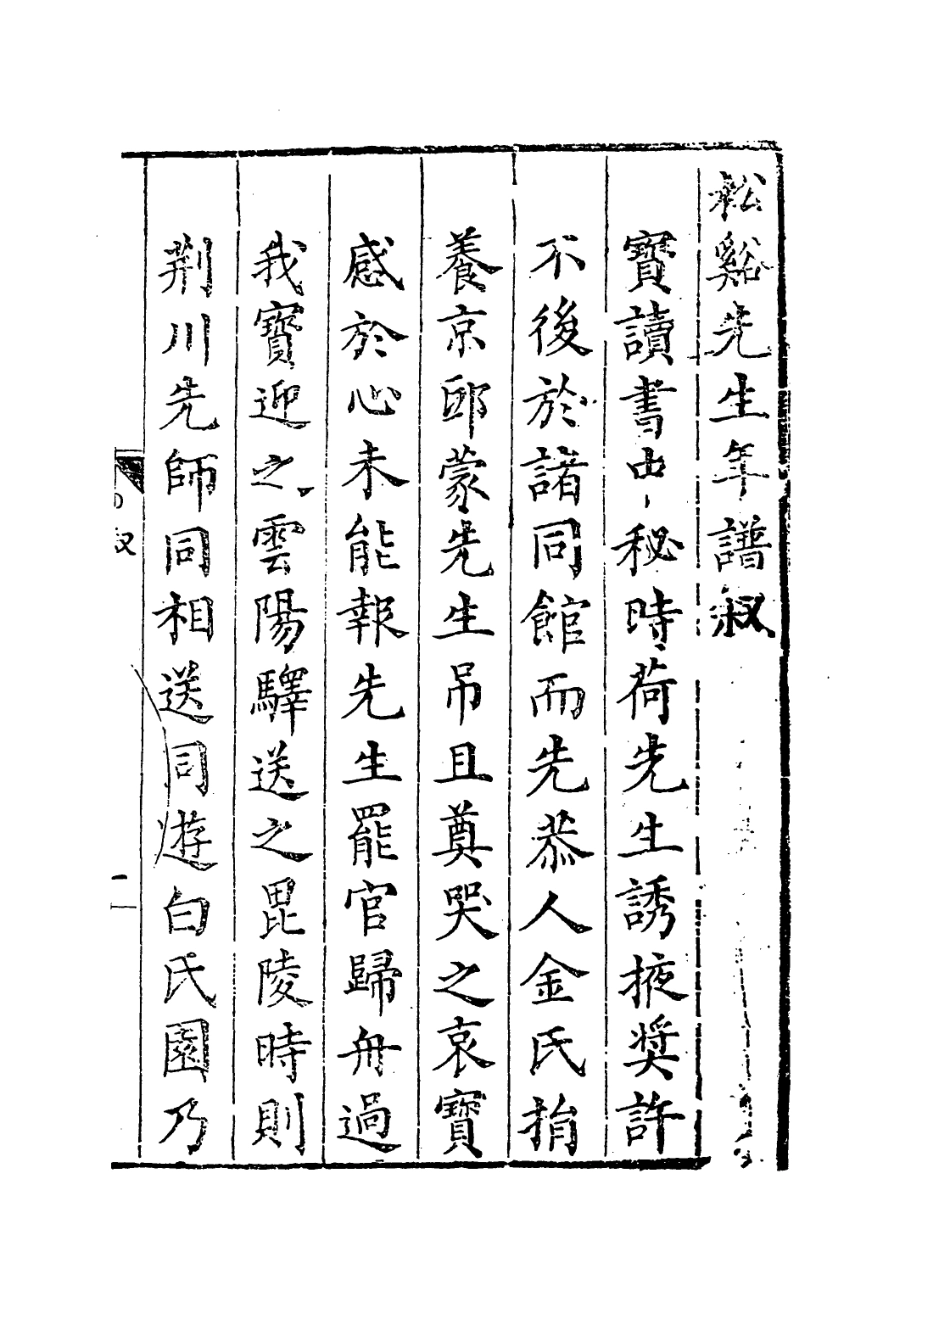 松谿先生年譜叙
寶讀書中秘時荷先生誘掖奨許
不後於諸同館而先恭人金氏捐
養京邸蒙先生吊且奠哭之哀寶
感於心未能報先生罷官歸舟過
我寶迎之雲陽驛送之毘陵時則
荆川先師同相送同遊白氏園乃
叙
一